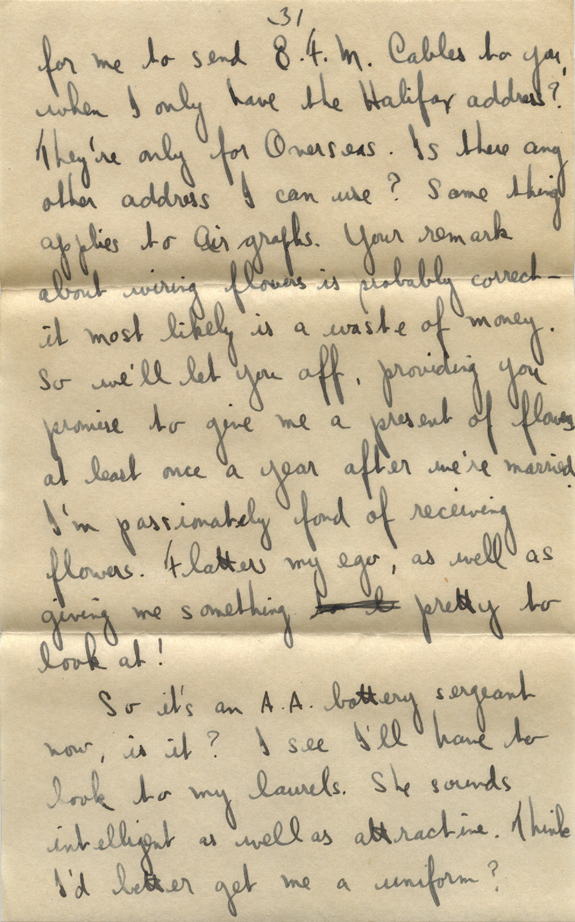 31
for me to send E.F.M. Cables to you,
when I only have the Halifax address?
They're only for Overseas. Is there any
other address I can use? Same thing
applies to Air graphs. Your remark
about wiring flowers is probably correct –
it most likely is a waste of money.
So we'll let you off, providing you
promise to give me a present of flowers
at least once a year after we're married.
I'm passionately fond of receiving
flowers. Flatters my ego, as well as
giving me something pretty to
look at!
So it's an A.A. battery sergeant
now, is it? I see I'll have to
look to my laurels. She sounds
intelligent as well as attractive. Think
I'd better get me a uniform?